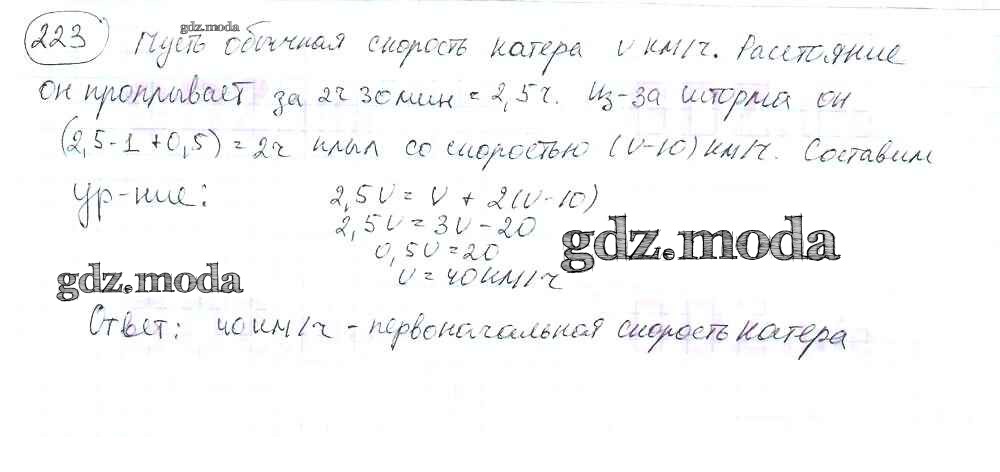 gdz.moda
223 Пусть обычная скорость катера v км/ч. Расстояние
он проплывает за 2ч 30мин = 2,5ч. Из-за шторма он
(2,5-1+0,5) = 2ч плыл со скоростью (v-10)км/ч. Составим
ур-ние: 2,5v = v + 2(v-10)
2,5v = 3v - 20
0,5v = 20
v = 40км/ч
gdz.moda
gdz.moda
Ответ: 40км/ч - первоначальная скорость катера